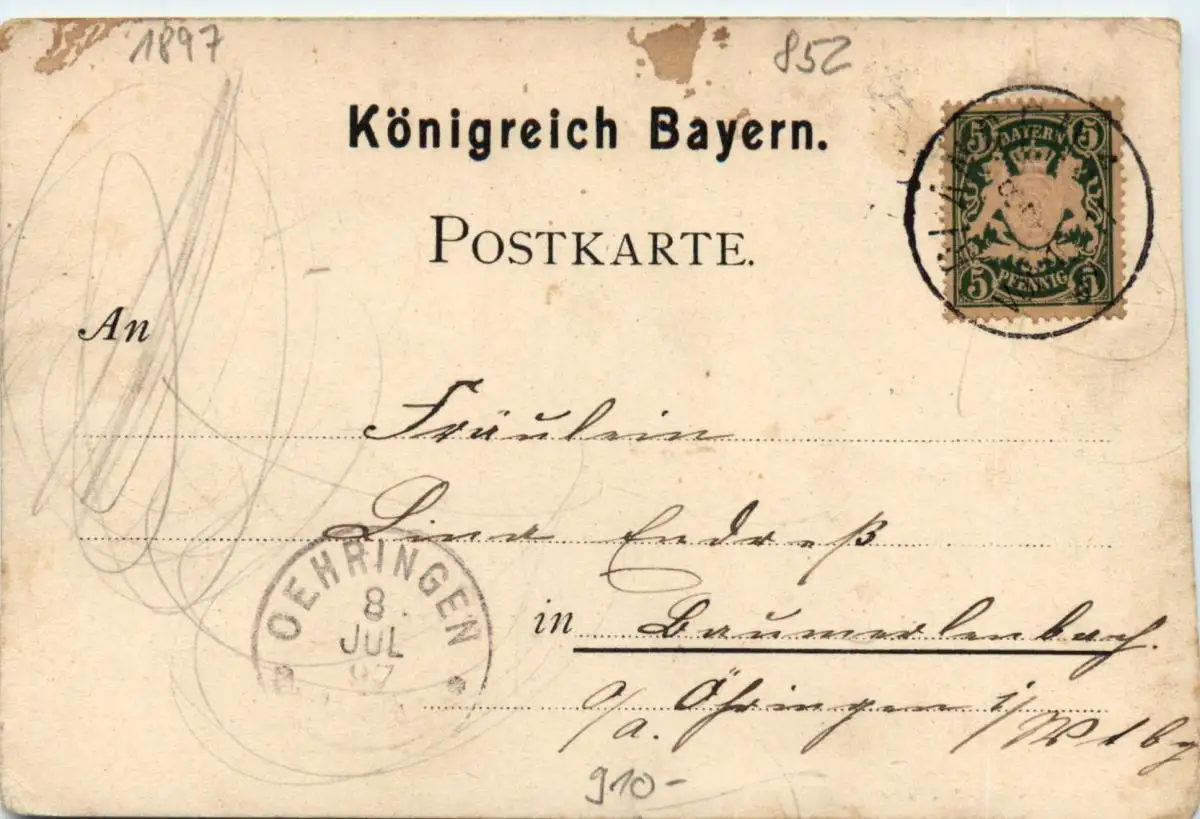 1897
852
Königreich Bayern.
POSTKARTE.
5 BAYERN 5
5 PFENNIG 5
An
Fräulein
Lina Endreß
OEHRINGEN
8.
JUL
97
in Baumerlenbach.
o/a. Öhringen i/Wtbg
910-